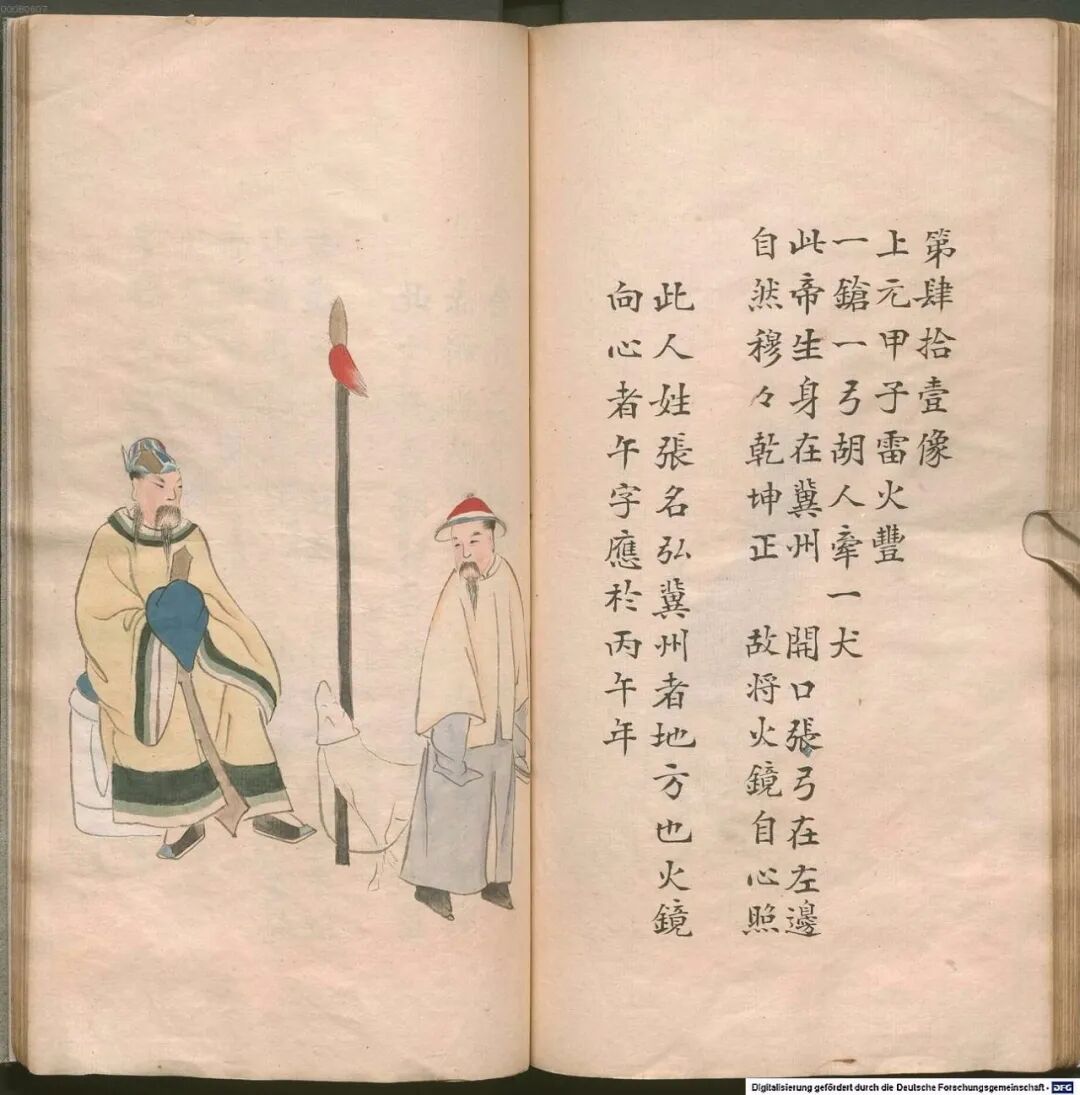 第肆拾壹像
上元甲子雷火豐
一鎗一弓胡人牽一犬
此帝生身在冀州 開口張弓在左邊
自然穆々乾坤正 故將火鏡自心照
此人姓張名弘冀州者地方也火鏡
向心者午字應於丙午年
00080607
Digitalisierung gefördert durch die Deutsche Forschungsgemeinschaft - DFG